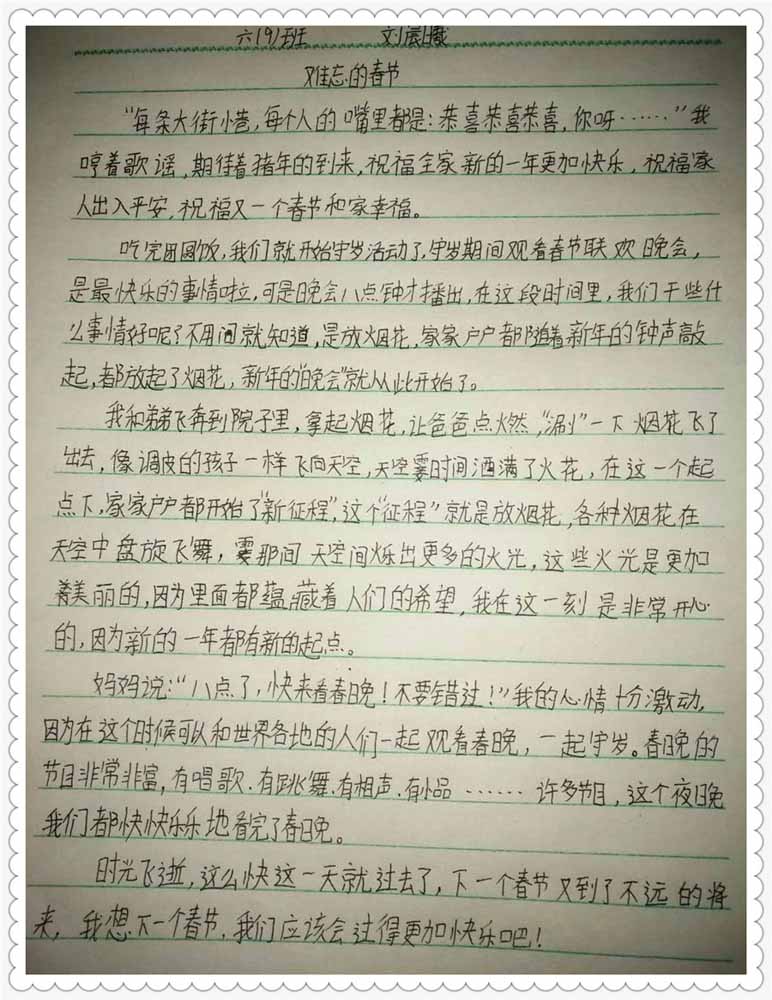 六(9)班 刘晨曦
难忘的春节
“每条大街小巷，每个人的嘴里都是：恭喜恭喜恭喜，你呀……”我
哼着歌谣，期待着猪年的到来，祝福全家新的一年更加快乐，祝福家
人出入平安，祝福又一个春节和家幸福。
吃完团圆饭，我们就开始守岁活动了，守岁期间观看春节联欢晚会，
是最快乐的事情啦，可是晚会八点钟才播出，在这段时间里，我们干些什
么事情好呢？不用问就知道，是放烟花，家家户户都随着新年的钟声敲
起，都放起了烟花，新年的“晚会”就从此开始了。
我和弟弟飞奔到院子里，拿起烟花，让爸爸点燃，“涮”一下烟花飞了
出去，像调皮的孩子一样飞向天空，天空霎时间洒满了火花，在这一个起
点下，家家户户都开始了“新征程”，这个“征程”就是放烟花，各种烟花在
天空中盘旋飞舞，霎那间天空间烁出更多的火光，这些火光是更加
美丽的，因为里面都蕴藏着人们的希望，我在这一刻是非常开心
的，因为新的一年都有新的起点。
妈妈说：“八点了，快来看春晚！不要错过！”我的心情十分激动，
因为在这个时候可以和世界各地的人们一起观看春晚，一起守岁。春晚的
节目非常非富，有唱歌.有跳舞.有相声.有小品……许多节目，这个夜晚
我们都快快乐乐地看完了春晚。
时光飞逝，这么快这一天就过去了，下一个春节又到了不远的将
来，我想下一个春节，我们应该会过得更加快乐吧！